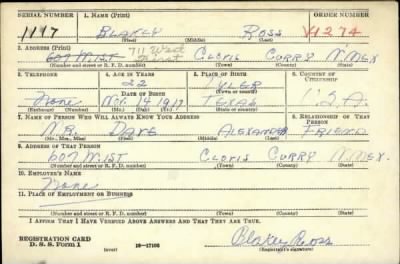 SERIAL NUMBER 1. NAME (Print) ORDER NUMBER
1117 BLAKEY ROSS V1274
(First) (Middle) (Last)
2. ADDRESS (Print) 711 West
607 W. 1ST First CLOVIS CURRY N MEX
(Number and street or R. F. D. number) (Town) (County) (State)
3. TELEPHONE 4. AGE IN YEARS 5. PLACE OF BIRTH 6. COUNTRY OF CITIZENSHIP
22 TYLER
DATE OF BIRTH (Town or county)
None Nov. 14 1917 TEXAS U.S.A.
(Exchange) (Number) (Mo.) (Day) (Yr.) (State or country)
7. NAME OF PERSON WHO WILL ALWAYS KNOW YOUR ADDRESS 8. RELATIONSHIP OF THAT PERSON
MR. DAVE ALEXANDER FRIEND
(Mr., Mrs., Miss) (First) (Middle) (Last)
9. ADDRESS OF THAT PERSON
607 W. 1ST CLOVIS CURRY N MEX.
(Number and street or R. F. D. number) (Town) (County) (State)
10. EMPLOYER'S NAME
None
11. PLACE OF EMPLOYMENT OR BUSINESS
(Number and street or R. F. D. number) (Town) (County) (State)
I AFFIRM THAT I HAVE VERIFIED ABOVE ANSWERS AND THAT THEY ARE TRUE.
REGISTRATION CARD
D. S. S. Form 1 (over) 16—17105 Blakey Ross
(Registrant's signature)